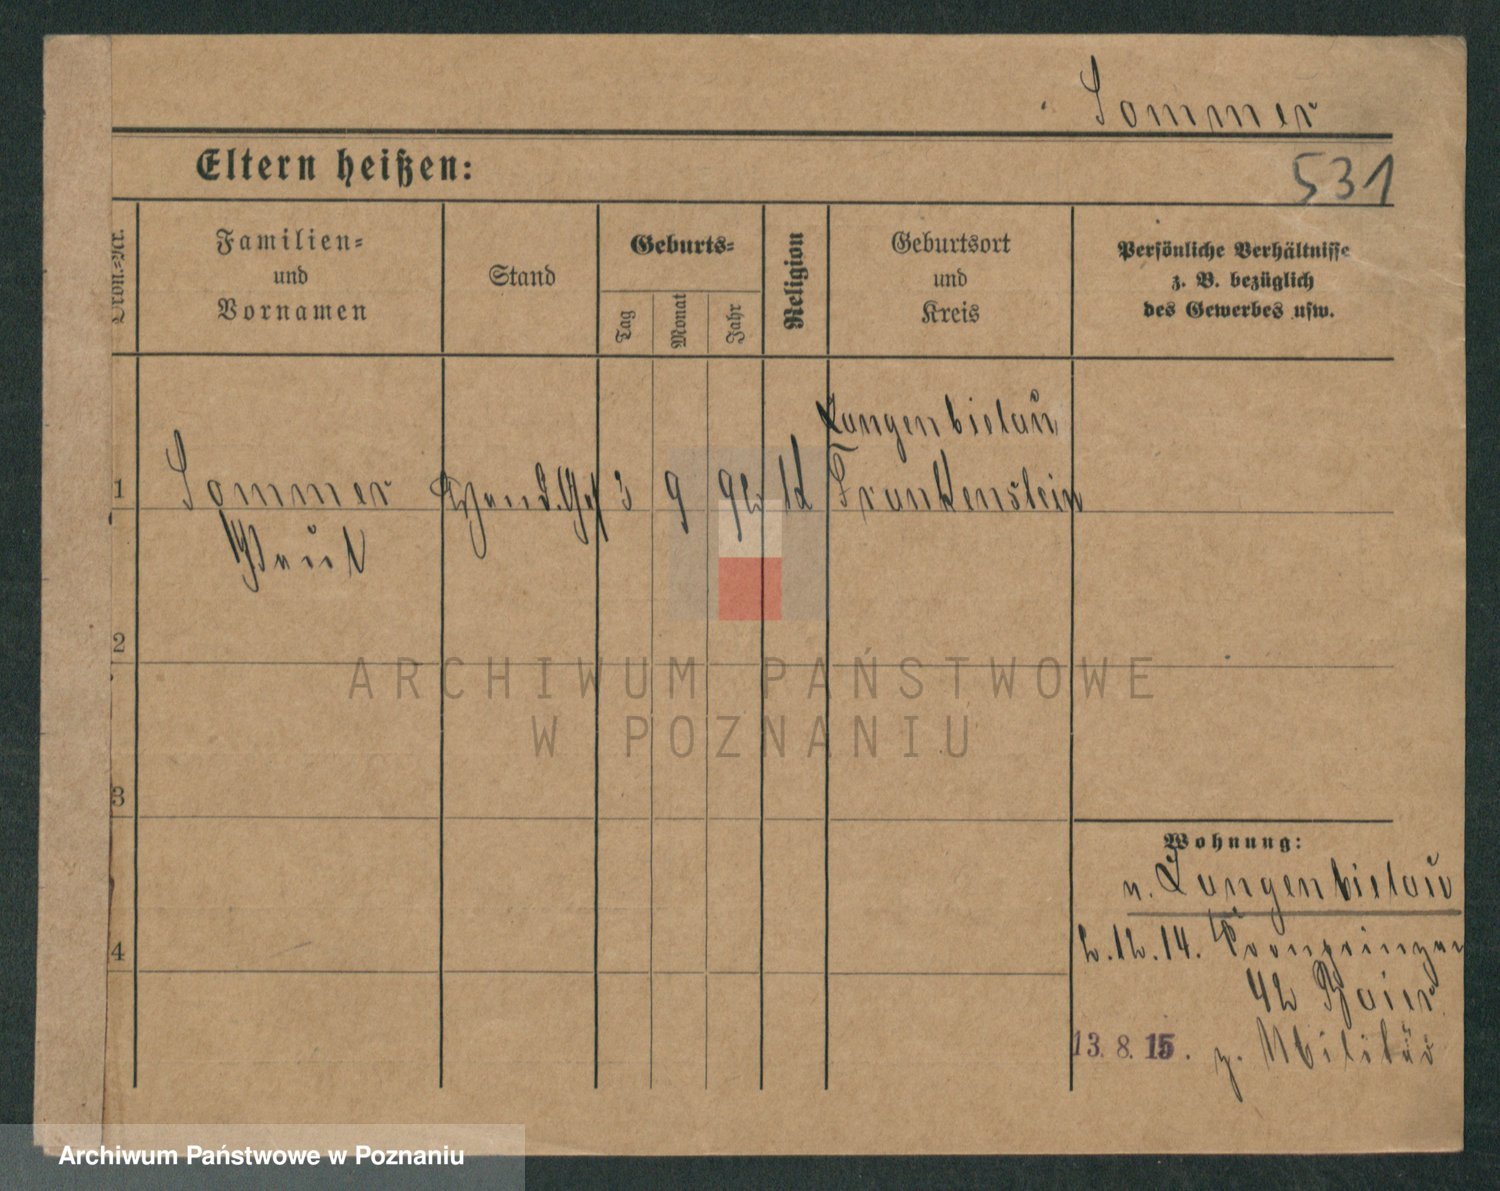 Sommer
Eltern heißen:
531
Ordn.-Nr.
Familien-
und
Vornamen
Stand
Geburts-
Tag
Monat
Jahr
Religion
Geburtsort
und
Kreis
Persönliche Verhältnisse
z. B. bezüglich
des Gewerbes usw.
Langenbielau
1
Sommer
3 9 92
Frankenstein
Paul
2
ARCHIWUM PAŃSTWOWE
W POZNANIU
3
Wohnung:
n. Langenbielau
4
2.12.14. Kronprinzen
42 Baier
13. 8. 15. z. Militär
Archiwum Państwowe w Poznaniu